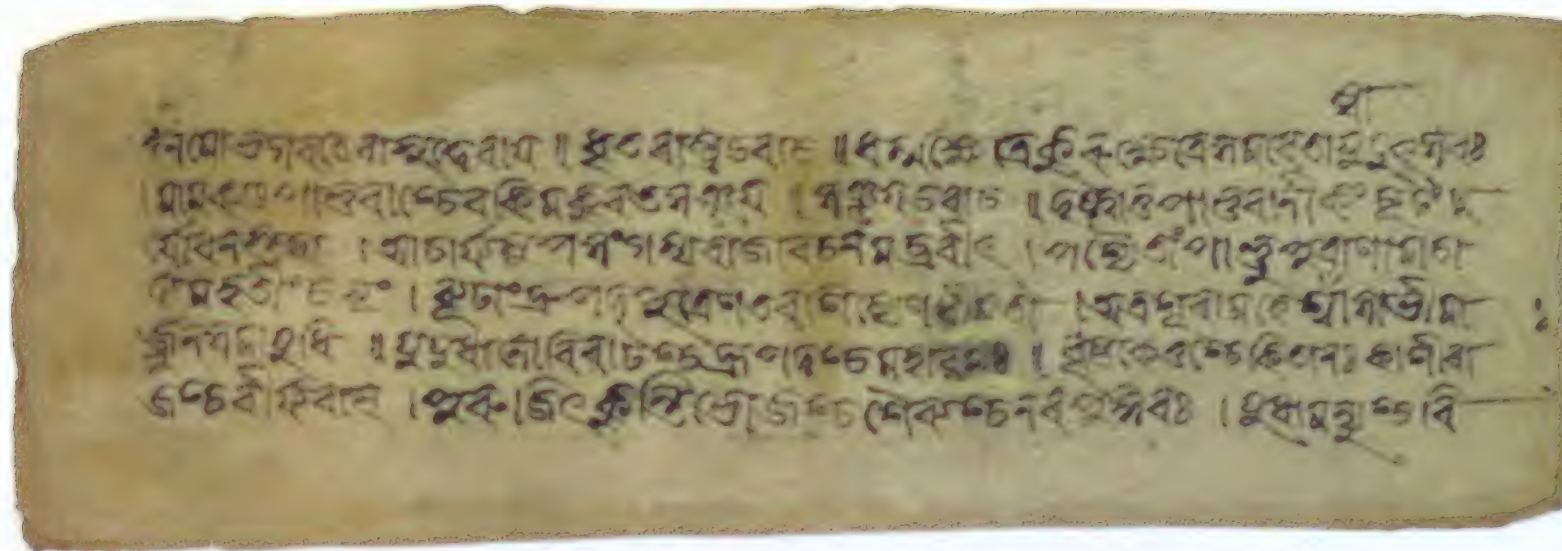 নমো ভগবতে বাসুদেবায় ॥ ধৃতৰাষ্ট্ৰ উবাচ ॥ ধৰ্ম্মক্ষেত্ৰে কুৰুক্ষেত্ৰে সমবেতা যুযুৎসবঃ
। মামকাঃ পাণ্ডবাশ্চৈব কিমকুৰ্বত সঞ্জয় । সঞ্জয় উবাচ ॥ দৃষ্ট্বা তু পাণ্ডবানীকং ব্যূঢ়ং দু
ৰ্যোধনস্তদা । আচাৰ্য্যমুপসংগম্য ৰাজা বচনমব্ৰবীৎ । পশ্যৈতাং পাণ্ডুপুত্ৰাণামাচা
ৰ্য মহতীং চমূং । ব্যূঢ়াং দ্ৰুপদপুত্ৰেণ তব শিষ্যেণ ধীমতা । অত্ৰ শূৰা মহেষ্বাসা ভীমা
ৰ্জুনসমা যুধি ॥ যুযুধানো বিৰাটশ্চ দ্ৰুপদশ্চ মহাৰথঃ ॥ ধৃষ্টকেতুশ্চেকিতানঃ কাশীৰা
জশ্চ বীৰ্য্যবান । পুৰুজিৎ কুন্তিভোজশ্চ শৈব্যশ্চ নৰপুঙ্গবঃ । যুধামন্যুশ্চ বি